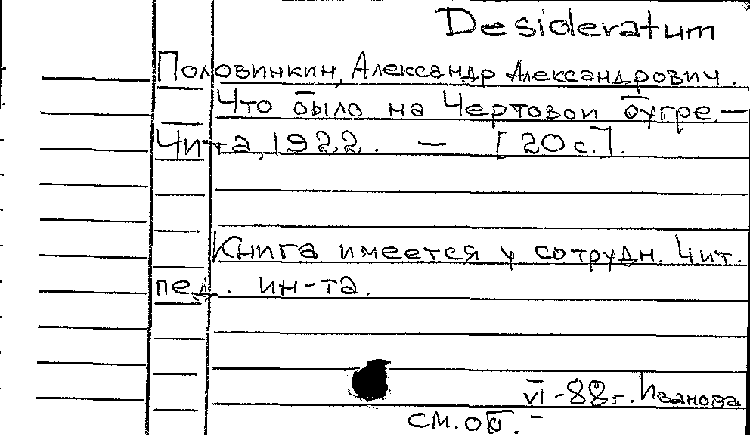 Desideratum
Половинкин, Александр Александрович.
Что было на Чертовой бугре. —
Чита, 1922. — [20 с.].
Книга имеется у сотрудн. Чит.
пед. ин-та.
VI-88г. Иванова
см. об.